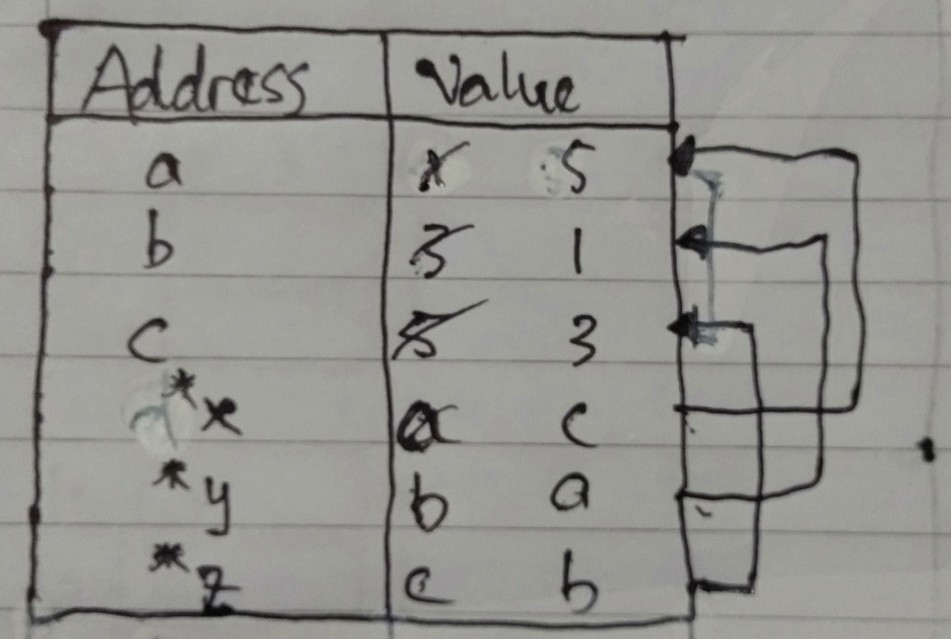 Address Value
a 1 5
b 3 1
c 5 3
*x a c
*y b a
*z c b